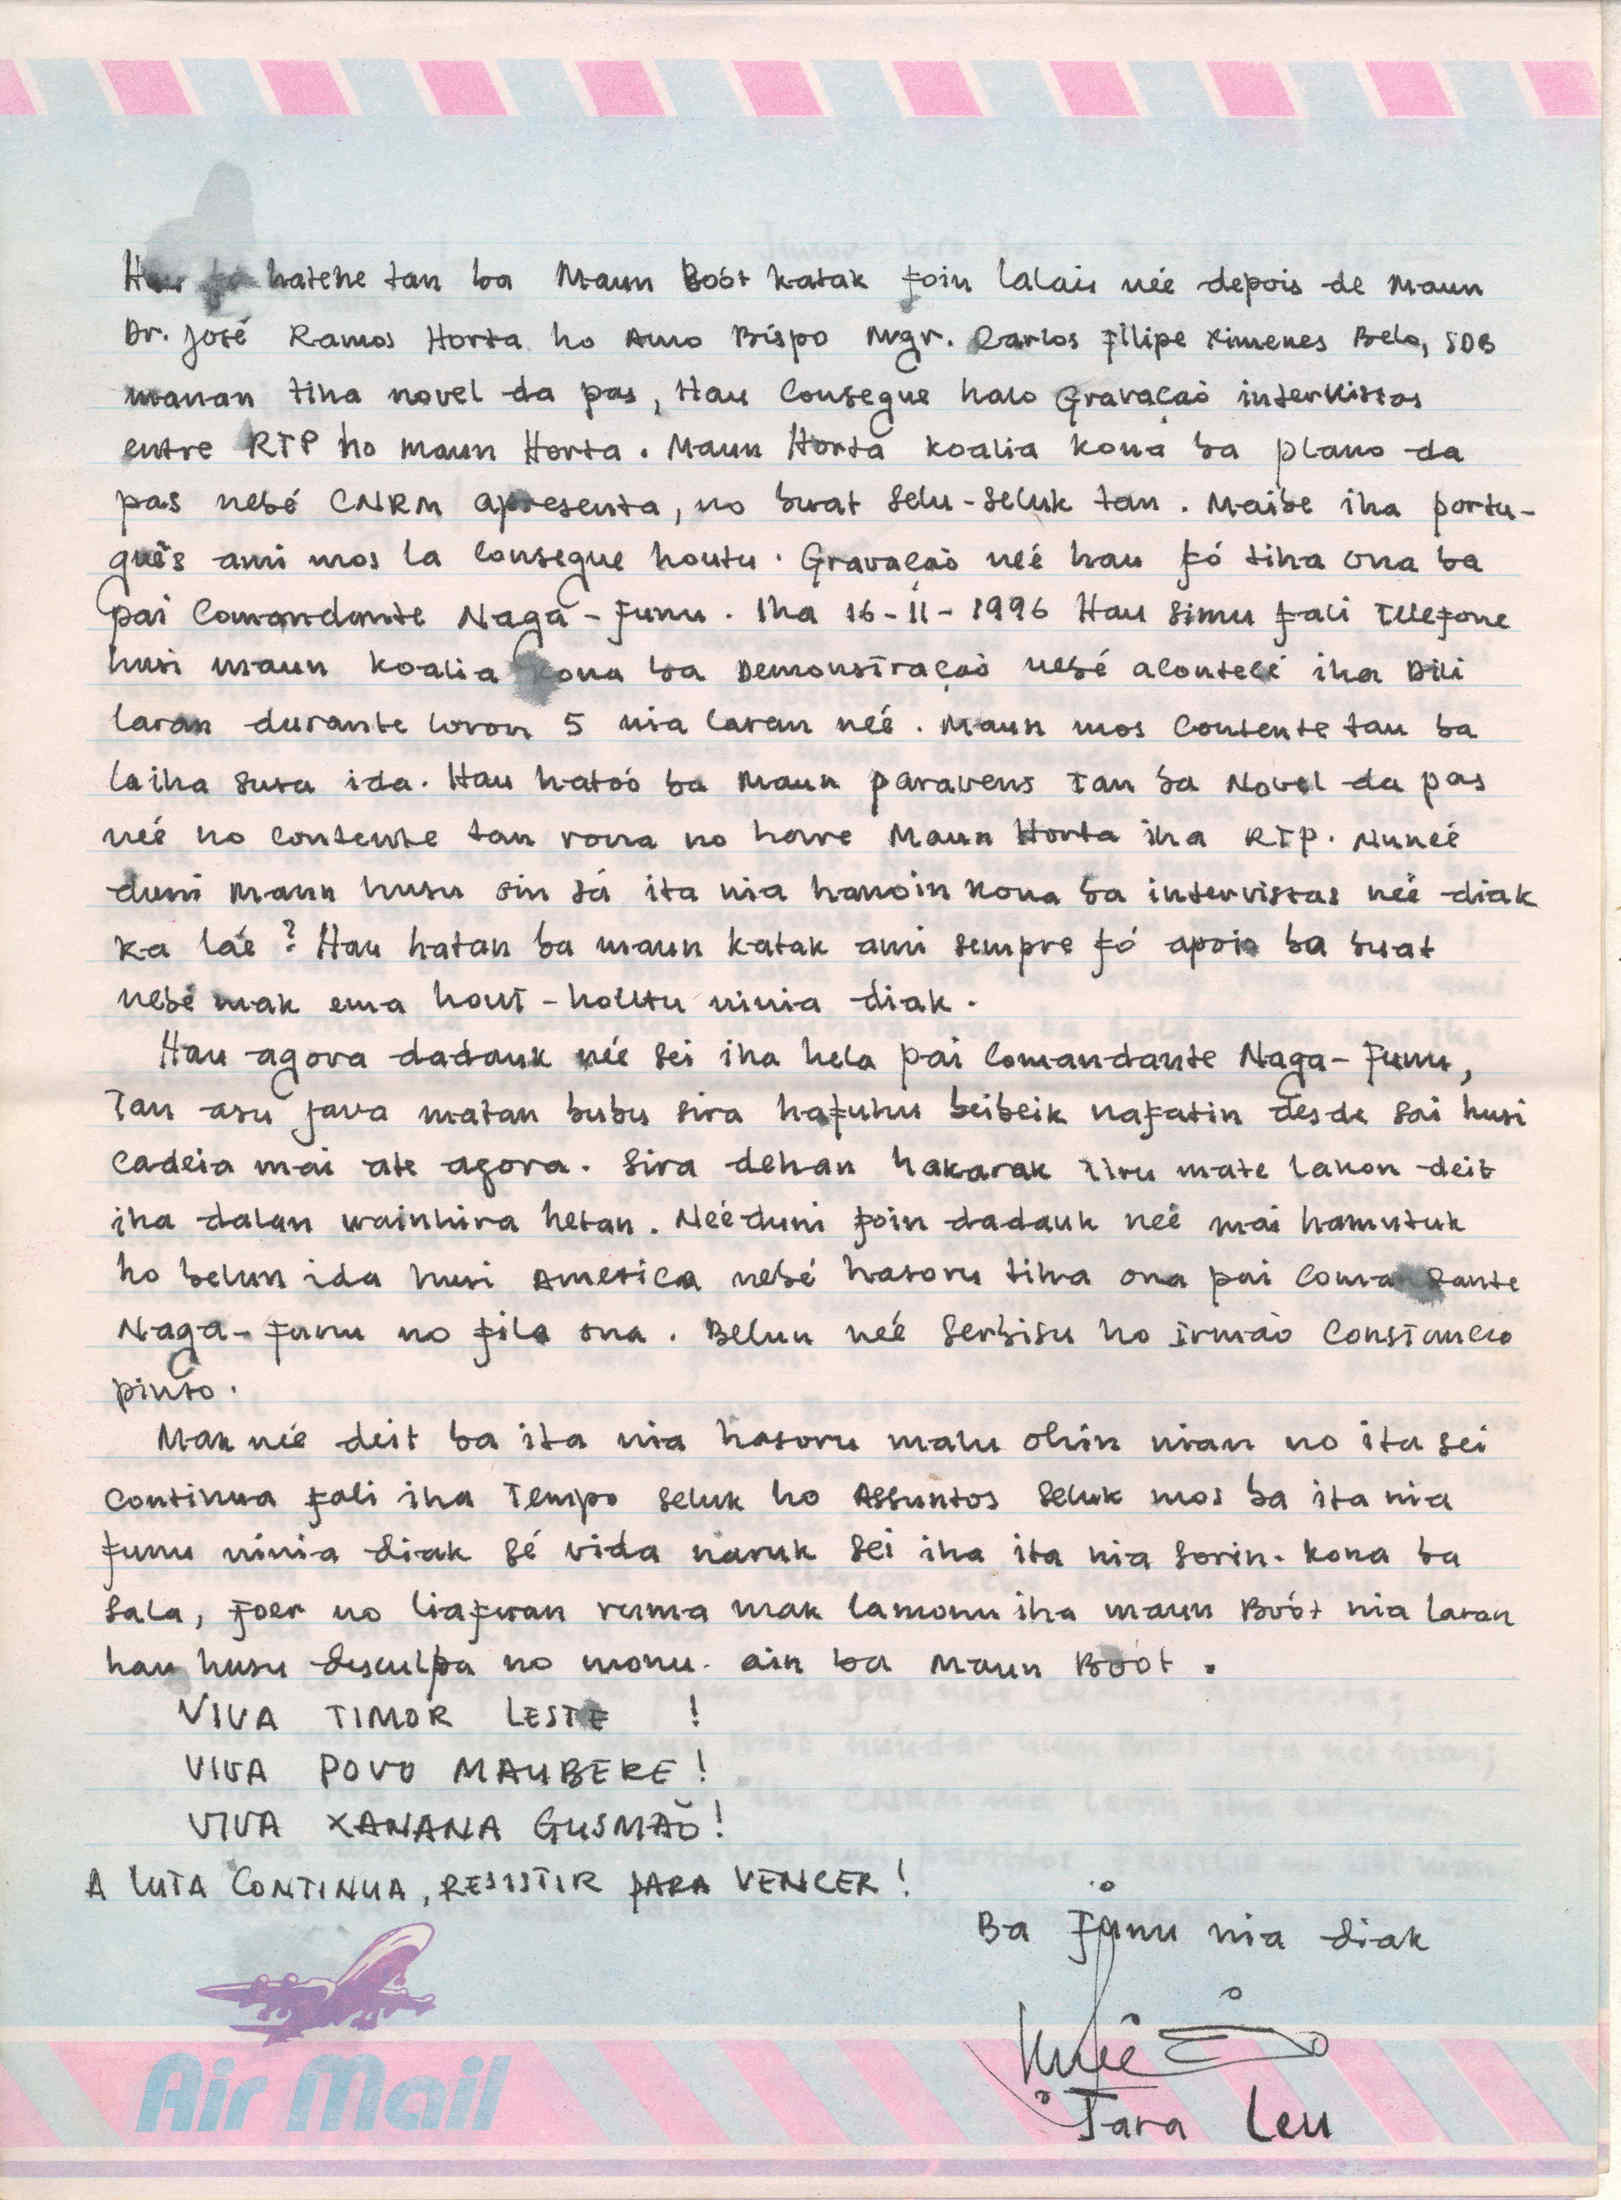 Hau fó hatene tan ba Maun Boót katak foin lalais neé depois de Maun
Dr. José Ramos Horta ho Amo Bispo Mgr. Carlos Filipe Ximenes Belo, SDB
manan tiha novel da pas, Hau Consegue halo Gravação interkistas
entre RTP ho maun Horta. Maun Horta koalia kona ba plano da
pas nebé CNRM apresenta, no buat selu-seluk tan. Maibe iha portu-
guês ami mos la Consegue houtu. Gravação neé hau fó tiha ona ba
pai Comandante Naga-Funu. Iha 16-11-1996 Hau simu fali Telefone
husi maun koalia kona ba Demonstração nebé acontecé iha Dili
laran durante loron 5 nia laran neé. Maun mos Contente tau ba
laiha susa ida. Hau hatoó ba Maun paravens tan ba Novel da pas
neé no Contente tan rona no hare Maun Horta iha RTP. Nuneé
duni Maun husu sin sá ita nia hanoin kona ba intervistas neé diak
ka laé? Hau hatan ba maun katak ami sempre fó apoio ba buat
nebé mak ema hout-houtu ninia diak.
Hau agora dadauk neé sei iha hela pai Comandante Naga-Funu,
Tan asu java matan bubu sira hafuhu beibeik nafatin desde sai husi
Cadeia mai ate agora. Sira dehan hakarak tiru mate lakon deit
iha dalan wainhira hetan. Neéduni foin dadauk neé mai hamutuk
ho belun ida husi America nebé hasoru tiha ona pai Comandante
Naga-Funu no fila ona. Belun neé Serbisu ho Irmão Constancio
pinto.
Mak neé deit ba ita nia hasoru malu ohin nian no ita sei
Continua fali iha Tempo seluk ho Assuntos seluk mos ba ita nia
Funu ninia diak sé vida naruk sei iha ita nia sorin. Kona ba
Sala, foer no liafuan ruma mak lamonu iha maun Boót nia laran
hau husu desculpa no monu ain ba Maun Boót.
VIVA TIMOR LESTE !
VIVA POVO MAUBERE !
VIVA XANANA GUSMÃO!
A LUTA CONTINUA, RESISTIR PARA VENCER!
Ba Funu nia diak
Fara Leu
Air Mail